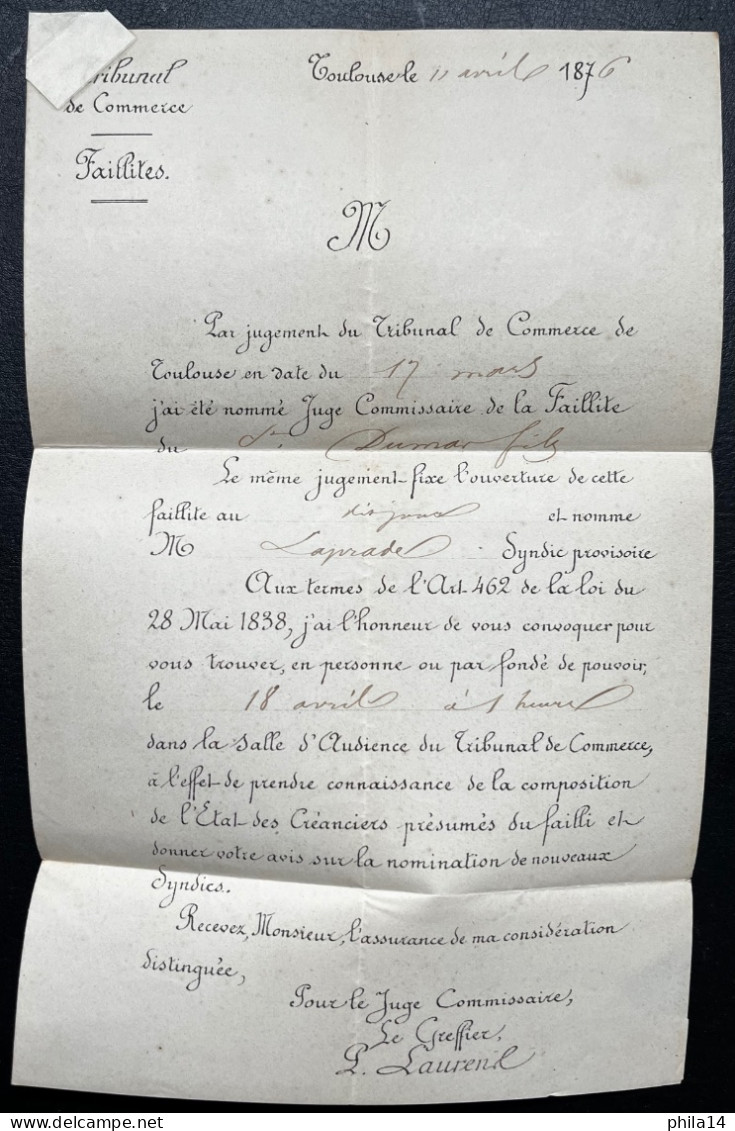 Tribunal
de Commerce
Faillites.
Toulouse le 11 avril 1876
M
Par jugement du Tribunal de Commerce de
Toulouse en date du 17 mars
j'ai été nommé Juge Commissaire de la Faillite
du Sr Dumas fils
Le même jugement fixe l'ouverture de cette
faillite au dit jour et nomme
M Laprade Syndic provisoire
Aux termes de l'Art 462 de la loi du
28 Mai 1838, j'ai l'honneur de vous convoquer pour
vous trouver, en personne ou par fondé de pouvoir,
le 18 avril à 1 heure
dans la Salle d'Audience du Tribunal de Commerce,
à l'effet de prendre connaissance de la composition
de l'Etat des Créanciers présumés du failli et
donner votre avis sur la nomination de nouveaux
Syndics.
Recevez, Monsieur, l'assurance de ma considération
distinguée,
Pour le Juge Commissaire,
Le Greffier,
P. Laurens
phila14